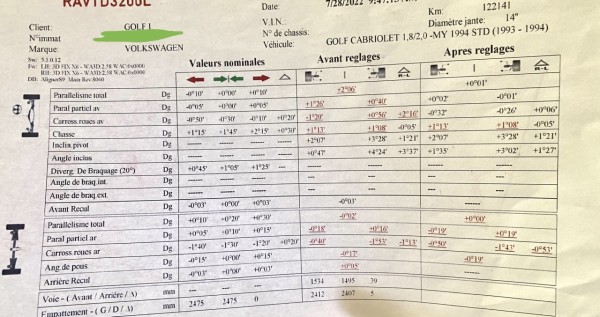 RAVTD3200L
Date: 7/28/2022
Client: GOLF I V.I.N.: Km: 122141
N°immat N° de chassis: Diamètre jante: 14"
Marque: VOLKSWAGEN Véhicule: GOLF CABRIOLET 1,8/2,0 -MY 1994 STD (1993 - 1994)
Valeurs nominales Avant reglages Apres reglages
Parallelisme total Dg -0°10' +0°00' +0°10' +2°06' +0°01'
Paral partiel av Dg -0°05' +0°00' +0°05' +1°26' +0°40' +0°02' -0°01'
Carross roues av Dg -0°50' -0°30' -0°10' +0°20' -1°20' +0°56' +2°16' -0°32' -0°26' +0°06'
Chasse Dg +1°15' +1°45' +2°15' +0°30' +1°13' +1°08' -0°05' +1°13' +1°08' -0°05'
Inclin pivot Dg ----- ----- ----- +2°07' +3°28' +1°21' +2°07' +3°28' +1°21'
Angle inclus Dg ----- ----- ----- +0°47' +4°24' +3°37' +1°35' +3°02' +1°27'
Diverg. De Braquage (20°) Dg +0°45' +1°05' +1°25' -----
Angle de braq int. Dg ----- ----- -----
Angle de braq ext. Dg ----- ----- -----
Avant Recul Dg -0°03' +0°00' +0°03' -0°03' -----
Parallelisme total Dg +0°10' +0°20' +0°30' -0°02' +0°00'
Paral partiel ar Dg +0°05' +0°10' +0°15' -0°18' +0°16' -0°19' +0°19'
Carross roues ar Dg -1°40' -1°30' -1°20' +0°20' -0°40' -1°53' -1°13' -0°50' -1°43' -0°53'
Ang de pous Dg -0°15' +0°00' +0°15' -0°17' -0°19'
Arrière Recul Dg -0°03' +0°00' +0°03' +0°05' -----
Voie - ( Avant / Arrière / Δ) mm 1534 1495 39
Empattement - ( G / D / Δ) mm 2475 2475 0 2412 2407 5